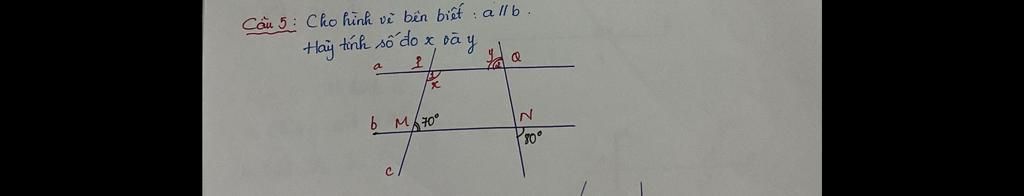 Câu 5 : Cho hình vẽ bên biết : a // b .
Hãy tính số đo x và y
y
a P 1 2 Q
x
b M 70° N
80°
c